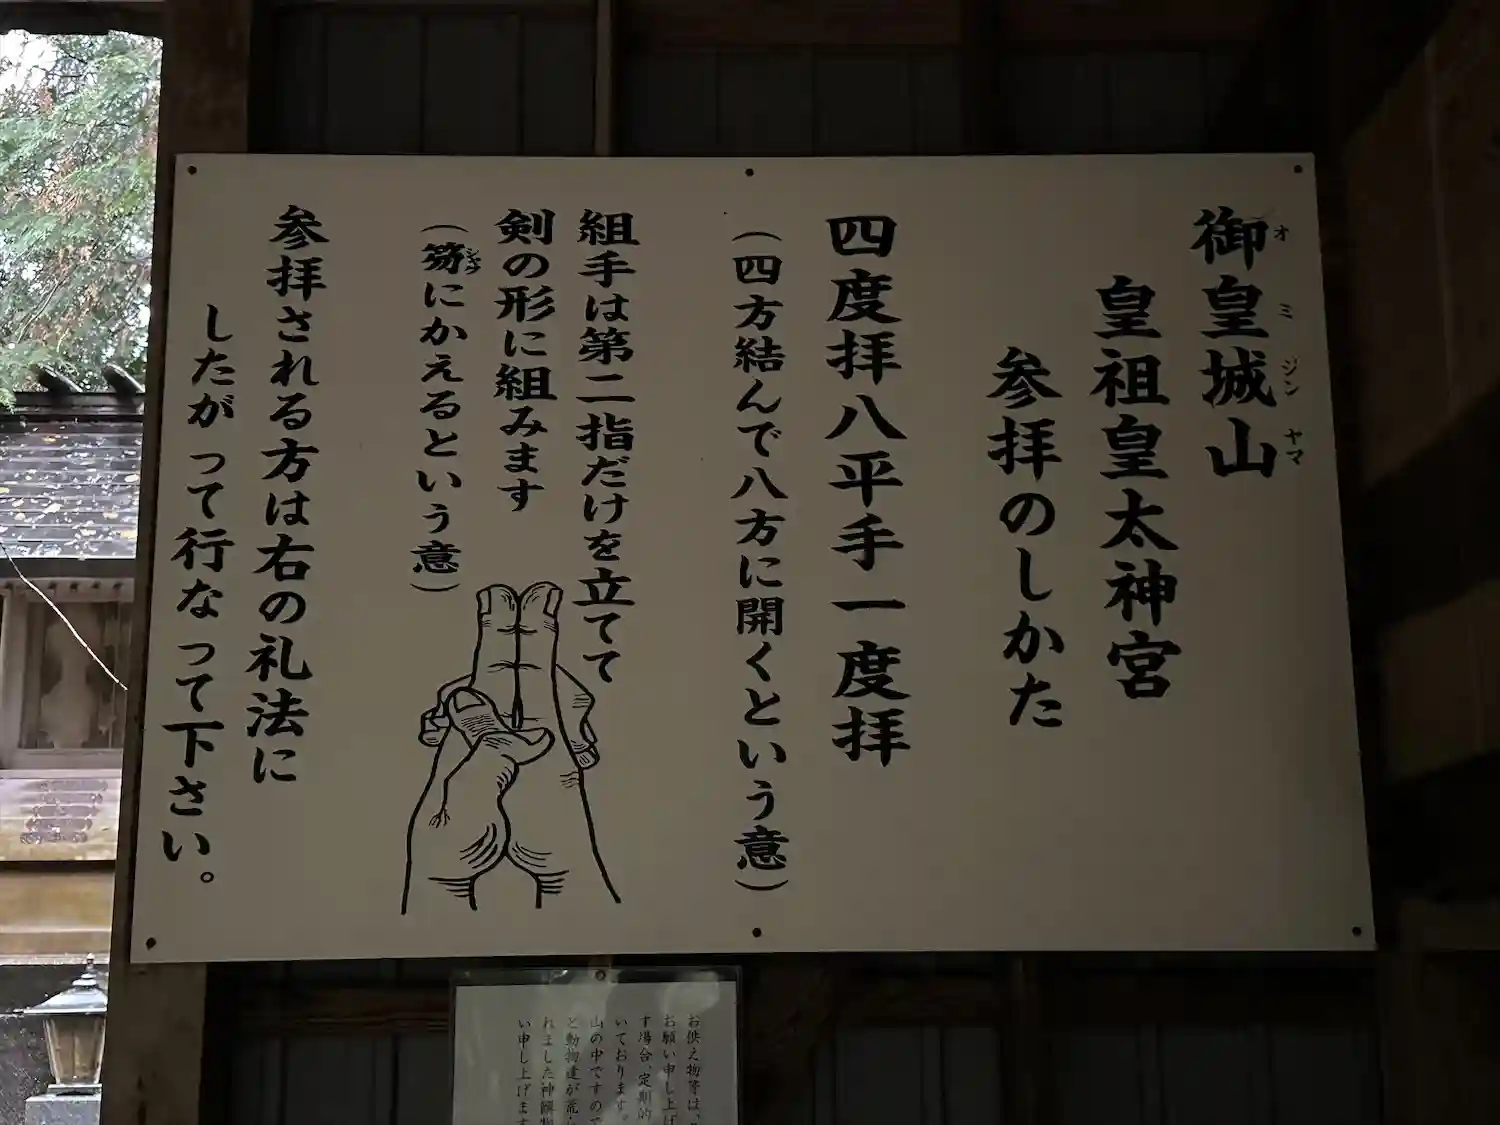 御皇城山
オミジンヤマ
皇祖皇太神宮
参拝のしかた
四度拝八平手一度拝
（四方結んで八方に開くという意）
組手は第二指だけを立てて
剣の形に組みます
（笏にかえるという意）
シャク
参拝される方は右の礼法に
したがって行なって下さい。
お供え物等は、
お願い申し上げ
す場合、定期的
いております。
山の中ですので
ど動物達が荒
れました神饌
い申し上げます